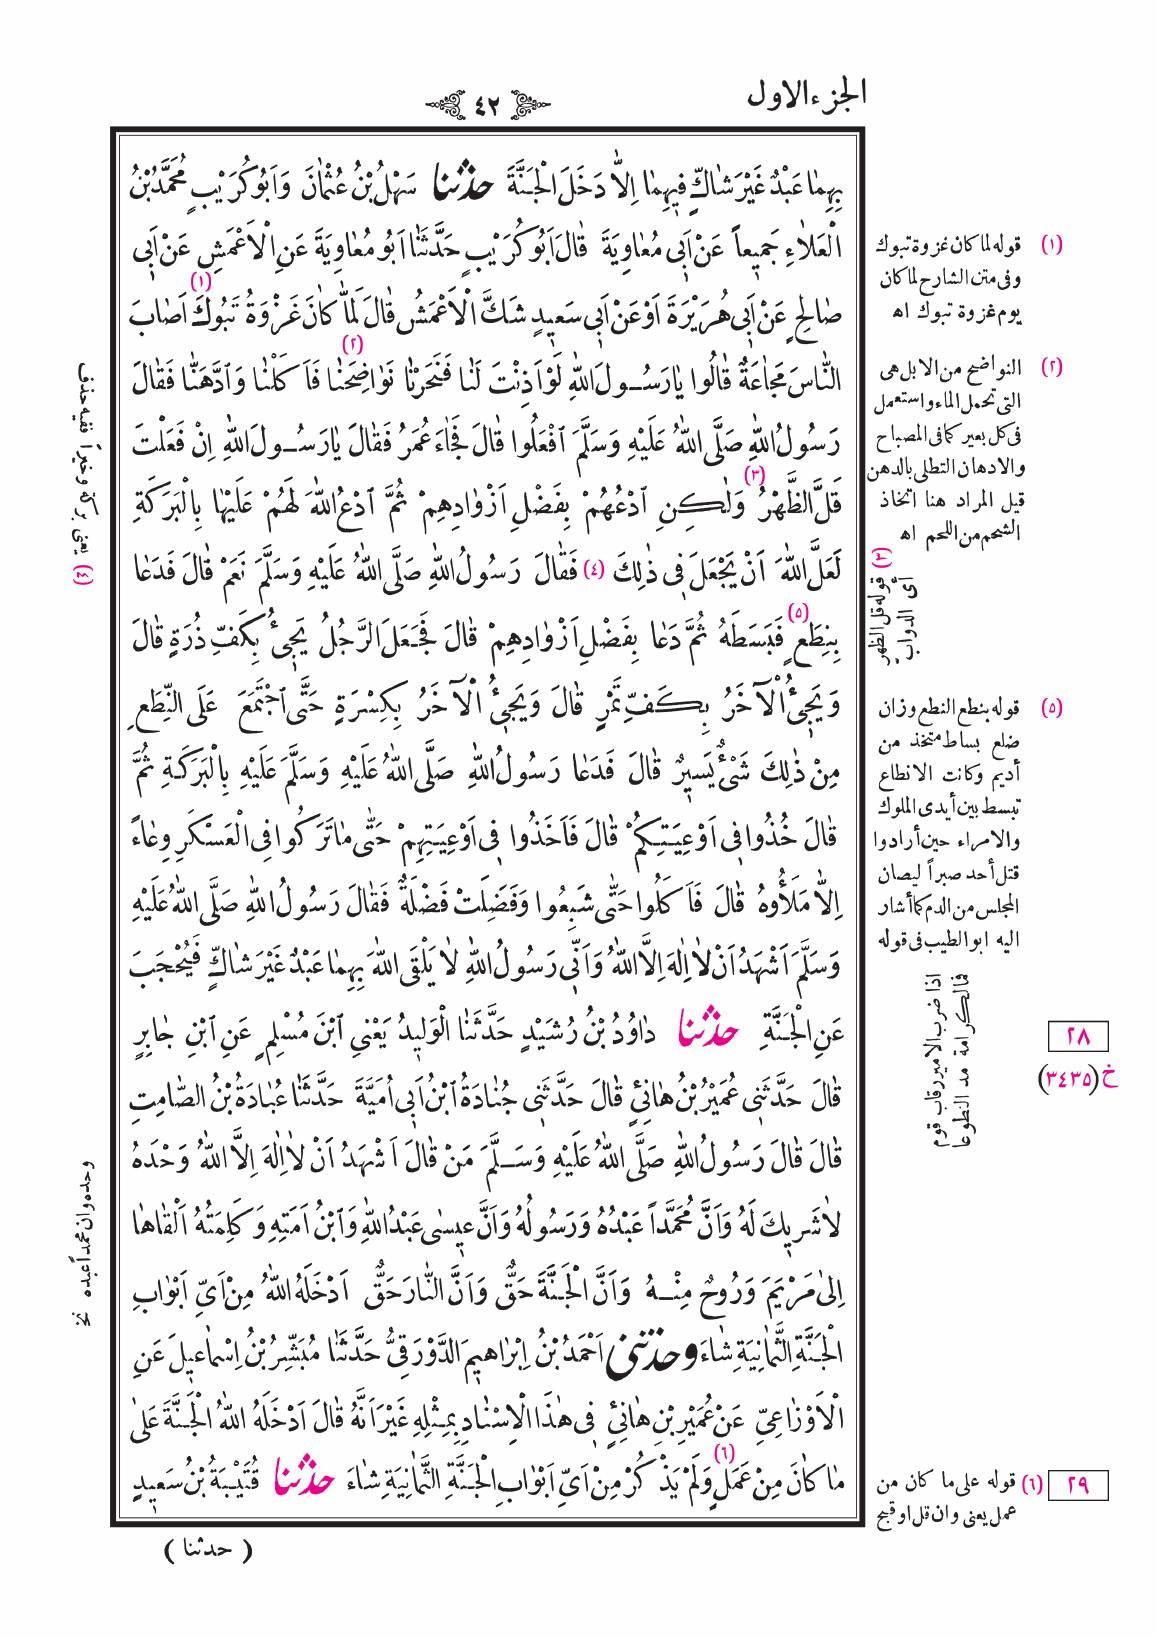 الجزء الاول
٤٢
بِهِمَا عَبْدٌ غَيْرَ شَاكٍّ فِيهِمَا اِلاَّ دَخَلَ الْجَنَّةَ حَدَّثَنَا سَهْلُ بْنُ عُثْمَانَ وَاَبُوكُرَيْبٍ مُحَمَّدُ بْنُ
الْعَلاَءِ جَمِيعاً عَنْ اَبِى مُعَاوِيَةَ قَالَ اَبُوكُرَيْبٍ حَدَّثَنَا اَبُو مُعَاوِيَةَ عَنِ الْاَعْمَشِ عَنْ اَبِى
صَالِحٍ عَنْ اَبِى هُرَيْرَةَ اَوْ عَنْ اَبِى سَعِيدٍ شَكَّ الْاَعْمَشُ قَالَ لَمَّا كَانَ غَزْوَةُ تَبُوكَ (١) اَصَابَ
النَّاسَ مَجَاعَةٌ قَالُوا يَا رَسُولَ اللّٰهِ لَوْ اَذِنْتَ لَنَا فَنَحَرْنَا نَوَاضِحَنَا (٢) فَاَكَلْنَا وَادَّهَنَّا فَقَالَ
رَسُولُ اللّٰهِ صَلَّى اللّٰهُ عَلَيْهِ وَسَلَّمَ افْعَلُوا قَالَ فَجَاءَ عُمَرُ فَقَالَ يَا رَسُولَ اللّٰهِ اِنْ فَعَلْتَ
قَلَّ الظَّهْرُ (٣) وَلٰكِنِ ادْعُهُمْ بِفَضْلِ اَزْوَادِهِمْ ثُمَّ ادْعُ اللّٰهَ لَهُمْ عَلَيْهَا بِالْبَرَكَةِ
لَعَلَّ اللّٰهَ اَنْ يَجْعَلَ فِى ذٰلِكَ (٤) فَقَالَ رَسُولُ اللّٰهِ صَلَّى اللّٰهُ عَلَيْهِ وَسَلَّمَ نَعَمْ قَالَ فَدَعَا
بِنِطَعٍ (٥) فَبَسَطَهُ ثُمَّ دَعَا بِفَضْلِ اَزْوَادِهِمْ قَالَ فَجَعَلَ الرَّجُلُ يَجِئُ بِكَفِّ ذُرَةٍ قَالَ
وَيَجِئُ الْآخَرُ بِكَفِّ تَمْرٍ قَالَ وَيَجِئُ الْآخَرُ بِكِسْرَةٍ حَتَّى اجْتَمَعَ عَلَى النِّطَعِ
مِنْ ذٰلِكَ شَىْءٌ يَسِيرٌ قَالَ فَدَعَا رَسُولُ اللّٰهِ صَلَّى اللّٰهُ عَلَيْهِ وَسَلَّمَ عَلَيْهِ بِالْبَرَكَةِ ثُمَّ
قَالَ خُذُوا فِى اَوْعِيَتِكُمْ قَالَ فَاَخَذُوا فِى اَوْعِيَتِهِمْ حَتَّى مَا تَرَكُوا فِى الْعَسْكَرِ وِعَاءً
اِلاَّ مَلَأُوهُ قَالَ فَاَكَلُوا حَتَّى شَبِعُوا وَفَضَلَتْ فَضْلَةٌ فَقَالَ رَسُولُ اللّٰهِ صَلَّى اللّٰهُ عَلَيْهِ
وَسَلَّمَ اَشْهَدُ اَنْ لاَ اِلٰهَ اِلاَّ اللّٰهُ وَاَنِّى رَسُولُ اللّٰهِ لاَ يَلْقَى اللّٰهَ بِهِمَا عَبْدٌ غَيْرَ شَاكٍّ فَيُحْجَبَ
عَنِ الْجَنَّةِ حَدَّثَنَا دَاوُدُ بْنُ رُشَيْدٍ حَدَّثَنَا الْوَلِيدُ يَعْنِى ابْنَ مُسْلِمٍ عَنِ ابْنِ جَابِرٍ
قَالَ حَدَّثَنِى عُمَيْرُ بْنُ هَانِئٍ قَالَ حَدَّثَنِى جُنَادَةُ ابْنُ اَبِى اُمَيَّةَ حَدَّثَنَا عُبَادَةُ بْنُ الصَّامِتِ
قَالَ قَالَ رَسُولُ اللّٰهِ صَلَّى اللّٰهُ عَلَيْهِ وَسَلَّمَ مَنْ قَالَ اَشْهَدُ اَنْ لاَ اِلٰهَ اِلاَّ اللّٰهُ وَحْدَهُ
لاَ شَرِيكَ لَهُ وَاَنَّ مُحَمَّداً عَبْدُهُ وَرَسُولُهُ وَاَنَّ عِيسٰى عَبْدُ اللّٰهِ وَابْنُ اَمَتِهِ وَكَلِمَتُهُ اَلْقَاهَا
اِلٰى مَرْيَمَ وَرُوحٌ مِنْهُ وَاَنَّ الْجَنَّةَ حَقٌّ وَاَنَّ النَّارَ حَقٌّ اَدْخَلَهُ اللّٰهُ مِنْ اَىِّ اَبْوَابِ
الْجَنَّةِ الثَّمَانِيَةِ شَاءَ وحَدَّثَنِى اَحْمَدُ بْنُ اِبْرَاهِيمَ الدَّوْرَقِىُّ حَدَّثَنَا مُبَشِّرُ بْنُ اِسْمَاعِيلَ عَنِ
الْاَوْزَاعِىِّ عَنْ عُمَيْرِ بْنِ هَانِئٍ فِى هٰذَا الْاِسْنَادِ بِمِثْلِهِ غَيْرَ اَنَّهُ قَالَ اَدْخَلَهُ اللّٰهُ الْجَنَّةَ عَلٰى
مَا كَانَ مِنْ عَمَلٍ (٦) وَلَمْ يَذْكُرْ مِنْ اَىِّ اَبْوَابِ الْجَنَّةِ الثَّمَانِيَةِ شَاءَ حَدَّثَنَا قُتَيْبَةُ بْنُ سَعِيدٍ
( حدثنا )
(١) قوله لما كان غزوة تبوك
وفى متن الشارح لما كان
يوم غزوة تبوك اه
(٢) النواضح من الابل هى
التى تحمل الماء واستعمل
فى كل بعير كما فى المصباح
والادهان التطلى بالدهن
قيل المراد هنا اتخاذ
الشحم من اللحم اه
(٣) قوله قل الظهر
اى الدواب
(٥) قوله بنطع النطع وزان
ضلع بساط متخذ من
أديم وكانت الانطاع
تبسط بين أيدى الملوك
والامراء حين أرادوا
قتل أحد صبراً ليصان
المجلس من الدم كما أشار
اليه ابو الطيب فى قوله
اذا ضرب الامير رقاب قوم
فما لكرامة مد النطوعا
٢٨
خ (٣٤٣٥)
٢٩
(٦) قوله على ما كان من
عمل يعنى وان قل او قبح
(٤) يعنى بركة وخيراً ففيه حذف
وحده وان محمداً عبده نخ